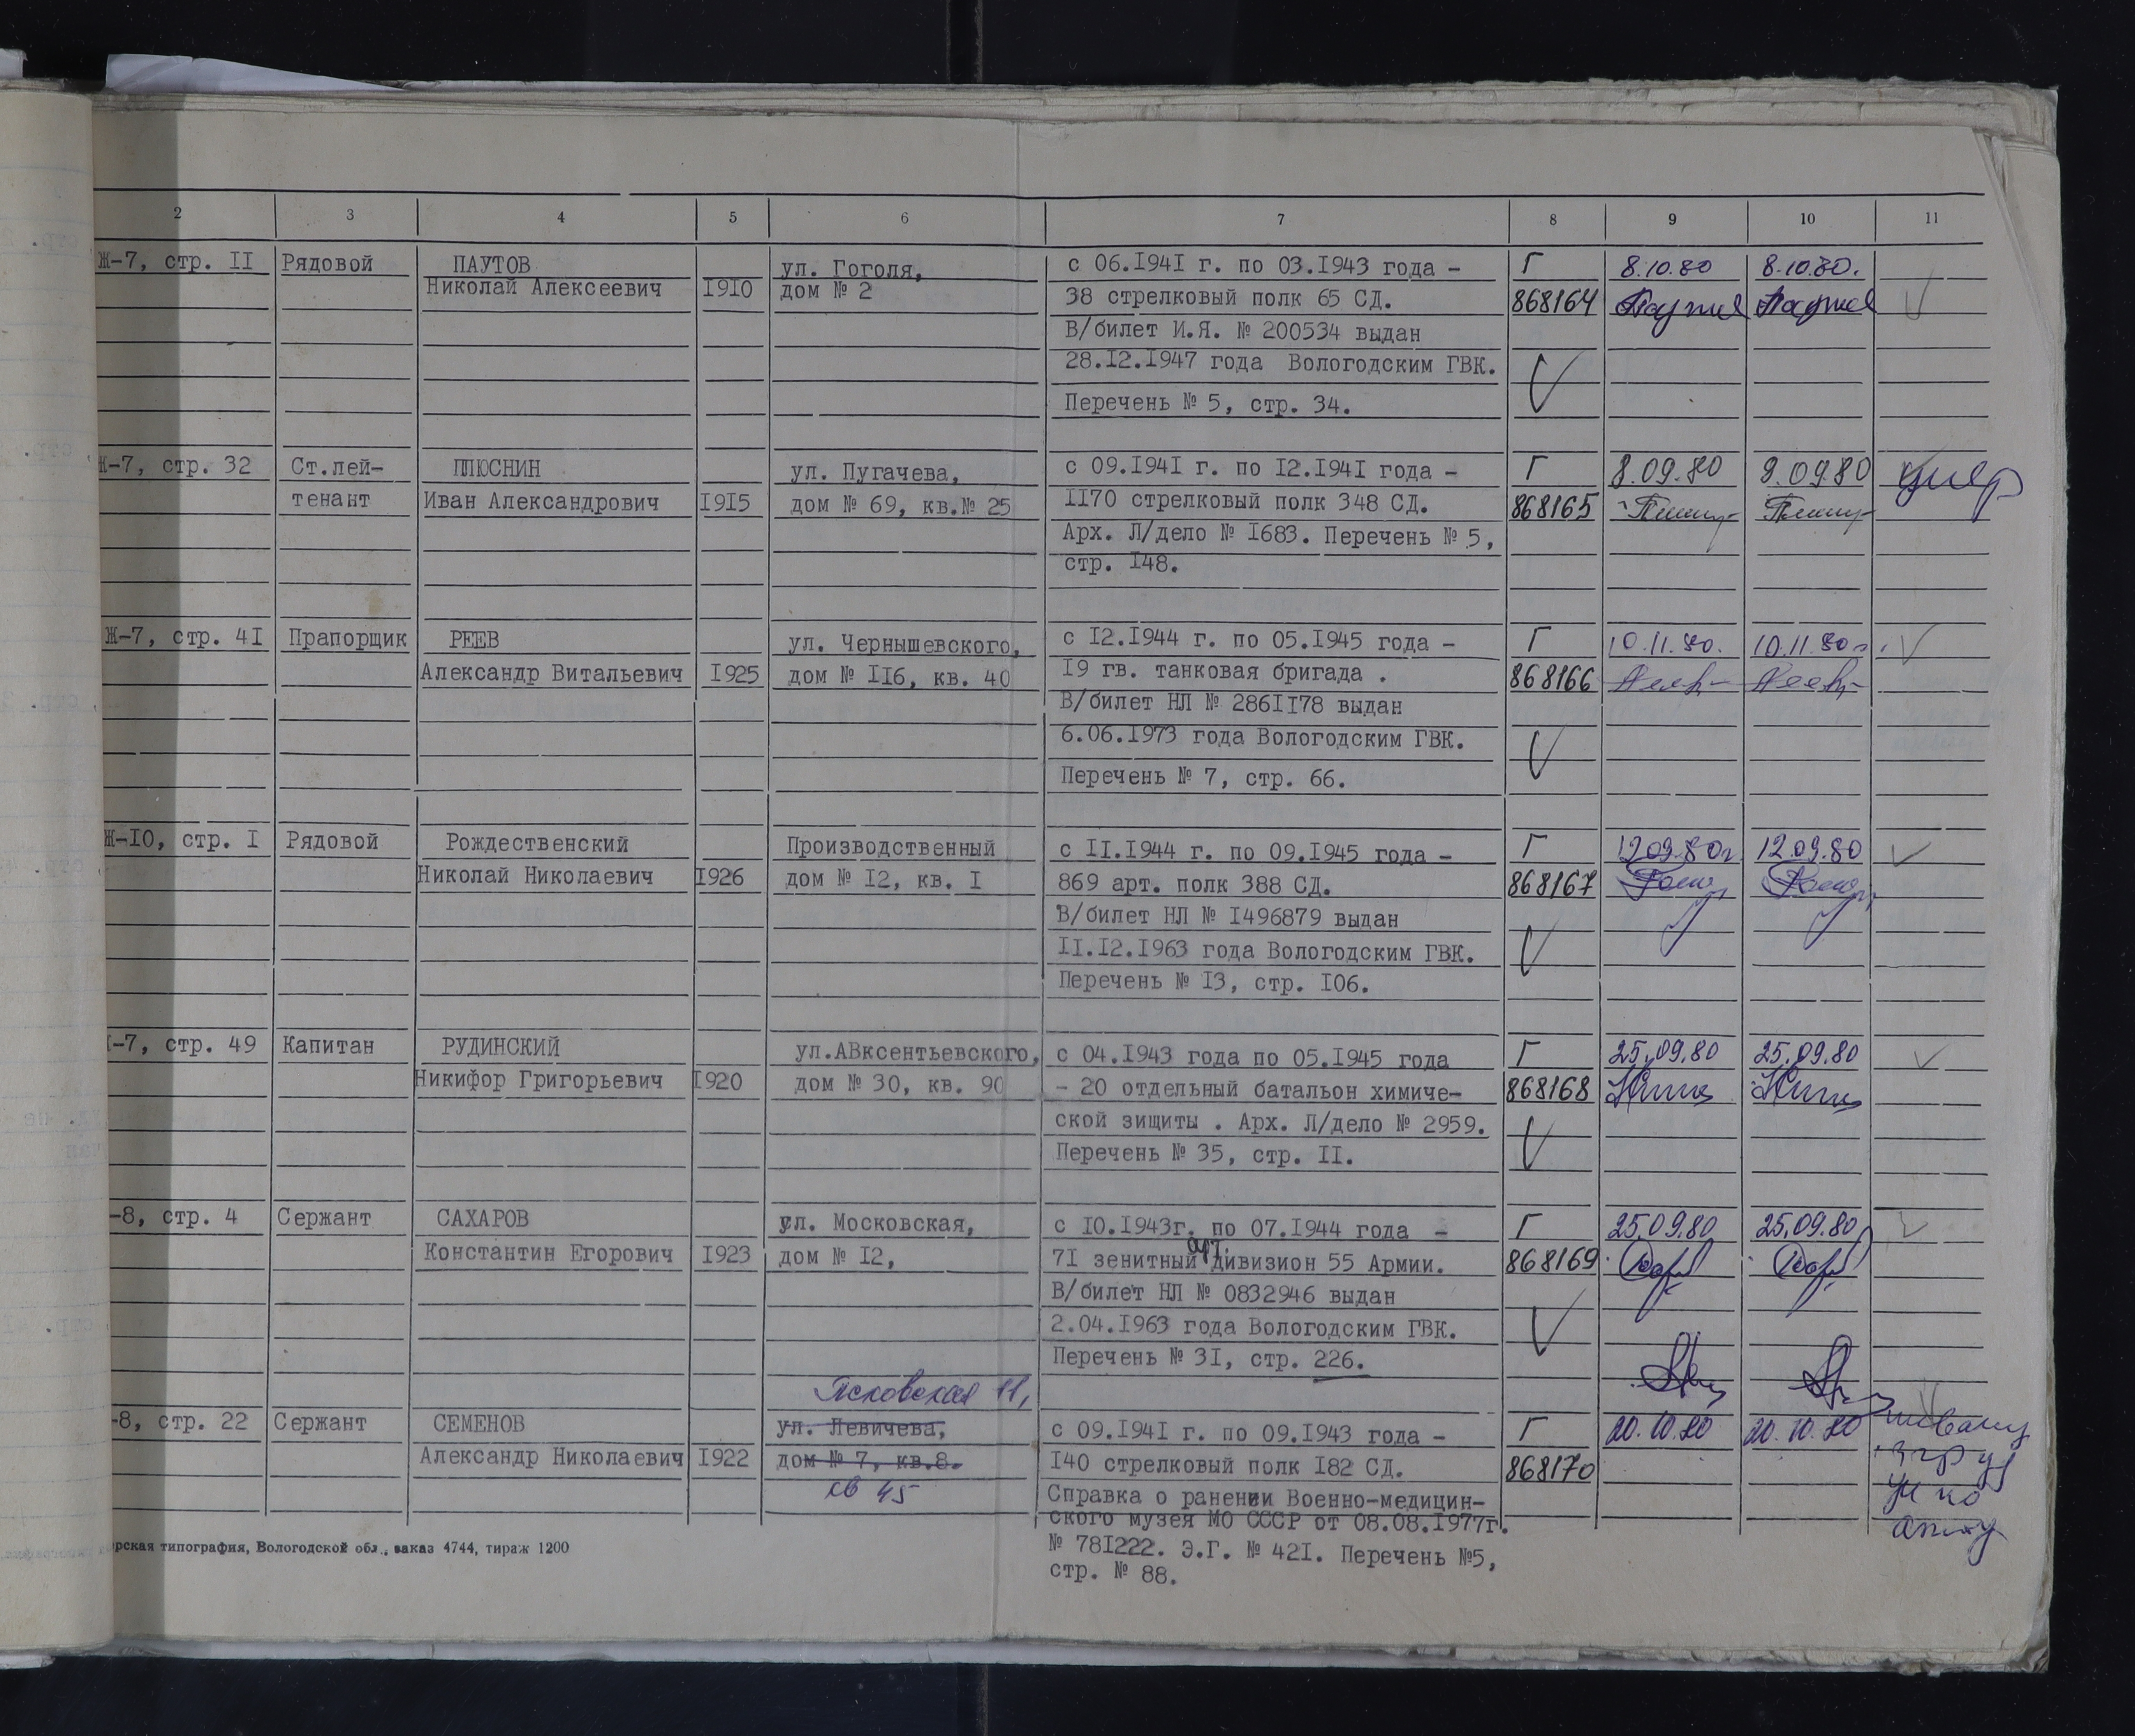 2 3 4 5 6 7 8 9 10 11
Ж-7, стр. II Рядовой ПАУТОВ ул. Гоголя, с 06.I94I г. по 03.I943 года - Г 8.10.80 8.10.80.
Николай Алексеевич I9I0 дом № 2 38 стрелковый полк 65 СД. 868164
В/билет И.Я. № 200534 выдан
28.I2.I947 года Вологодским ГВК.
Перечень № 5, стр. 34.
Ж-7, стр. 32 Ст.лей- ПЛЮСНИН ул. Пугачева, с 09.I94I г. по I2.I94I года - Г 8.09.80 8.09.80 умер
тенант Иван Александрович I9I5 дом № 69, кв.№ 25 II70 стрелковый полк 348 СД. 868165
Арх. Л/дело № I683. Перечень № 5,
стр. I48.
Ж-7, стр. 4I Прапорщик РЕЕВ ул. Чернышевского, с I2.I944 г. по 05.I945 года - Г 10.11.80. 10.11.80г.
Александр Витальевич I925 дом № II6, кв. 40 I9 гв. танковая бригада . 868166
В/билет НЛ № 286II78 выдан
6.06.I973 года Вологодским ГВК.
Перечень № 7, стр. 66.
Ж-I0, стр. I Рядовой Рождественский Производственный с II.I944 г. по 09.I945 года - Г 12.09.80г 12.09.80
Николай Николаевич I926 дом № I2, кв. I 869 арт. полк 388 СД. 868167
В/билет НЛ № I496879 выдан
II.I2.I963 года Вологодским ГВК.
Перечень № I3, стр. I06.
-7, стр. 49 Капитан РУДИНСКИЙ ул.АВксентьевского, с 04.I943 года по 05.I945 года Г 25.09.80 25.09.80
Никифор Григорьевич I920 дом № 30, кв. 90 - 20 отдельный батальон химиче- 868168
ской зищиты . Арх. Л/дело № 2959.
Перечень № 35, стр. II.
-8, стр. 4 Сержант САХАРОВ ул. Московская, с I0.I943г. по 07.I944 года - Г 25.09.80 25.09.80
Константин Егорович I923 дом № I2, 7I зенитный арт. дивизион 55 Армии. 868169
В/билет НЛ № 0832946 выдан
2.04.I963 года Вологодским ГВК.
Перечень № 3I, стр. 226.
Псковская 11,
-8, стр. 22 Сержант СЕМЕНОВ ул. Левичева, с 09.I94I г. по 09.I943 года - Г 20.10.80 20.10.80
Александр Николаевич I922 дом № 7, кв.8. I40 стрелковый полк I82 СД. 868170
кв 45 Справка о ранении Военно-медицин-
ского музея МО СССР от 08.08.I977г.
№ 78I222. Э.Г. № 42I. Перечень №5,
стр. № 88.
рская типография, Вологодской обл., заказ 4744, тираж 1200